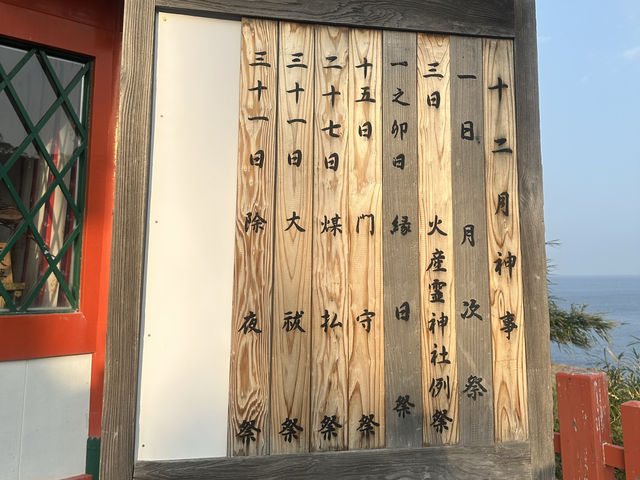 十二月神事
一日月次祭
三日火産霊神社例祭
一之卯日縁日祭
十五日門守祭
二十七日煤払祭
三十一日大祓祭
三十一日除夜祭